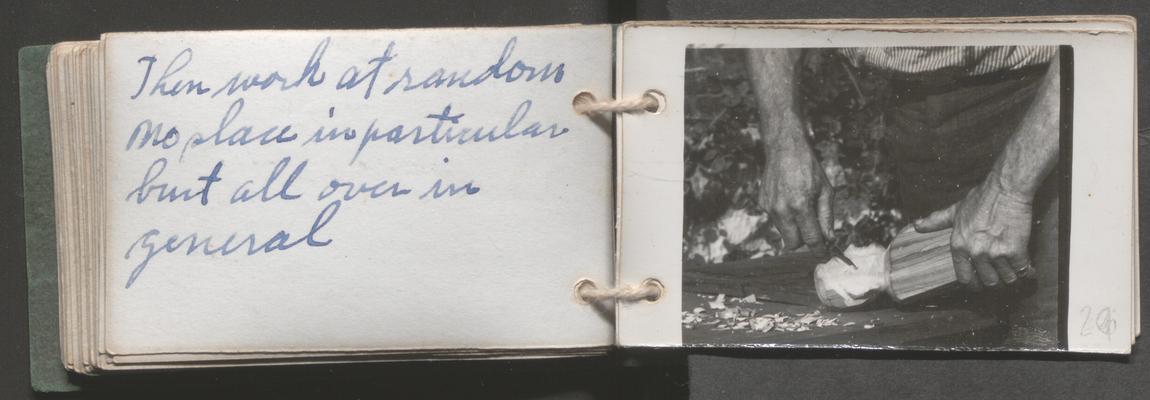 Then work at random
no place in particular
but all over in
general